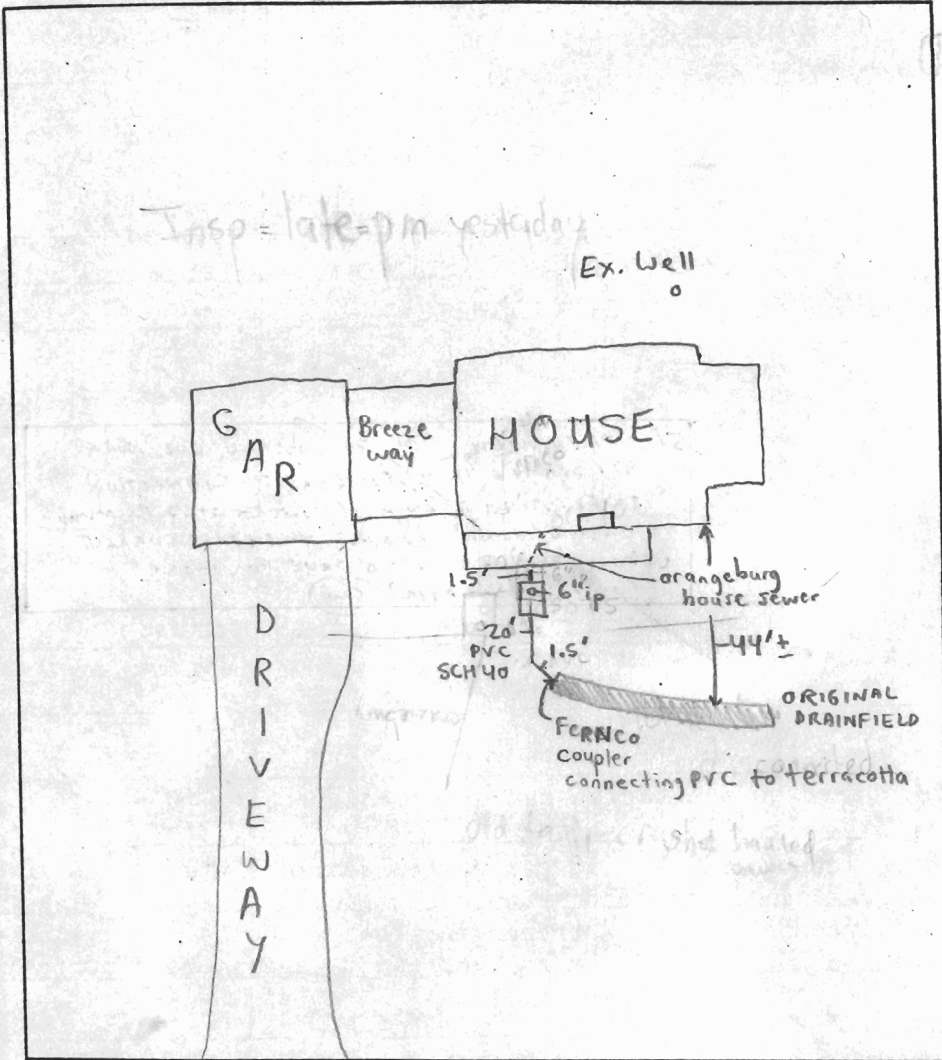 Insp = late = pm yesterday
Ex. Well
GAR
Breeze
way
HOUSE
1.5'
6" ip
orangeburg
house sewer
20'
PVC
SCH 40
1.5'
44' ±
ORIGINAL
DRAINFIELD
FERNCO
coupler
connecting PVC to terracotta
DRIVEWAY